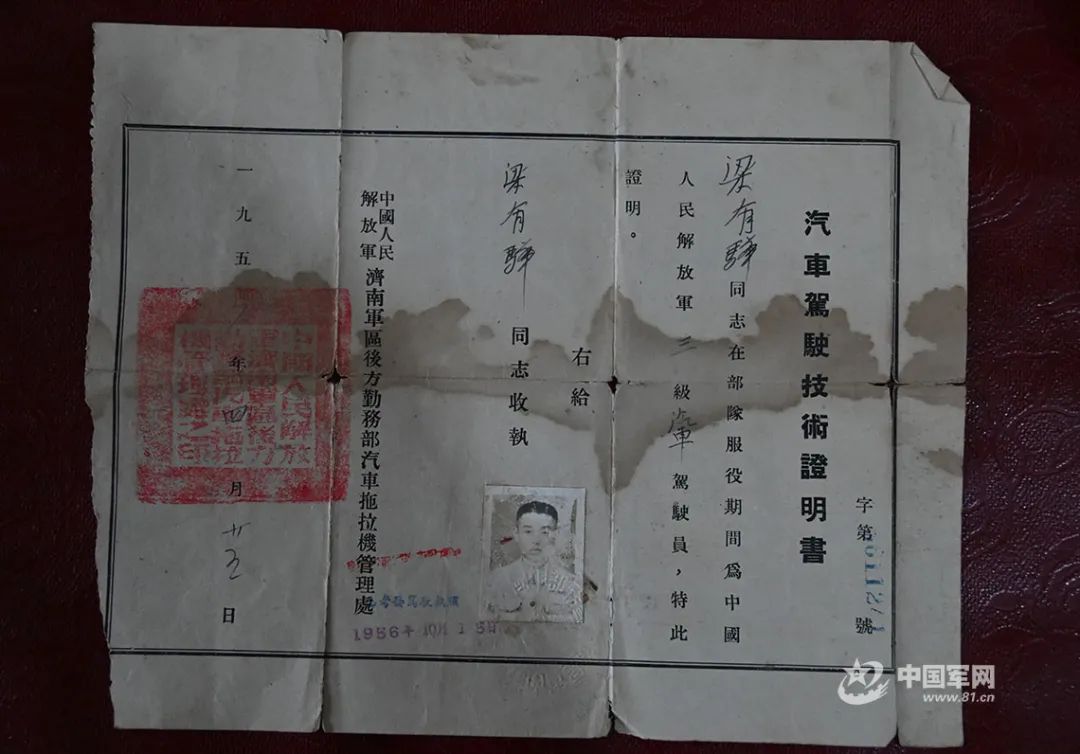 汽車駕駛技術證明書
字第
號
梁有驊同志在部隊服役期間爲中國
人民解放軍三級汽車駕駛員,特此
證明。
右給
梁有驊同志收執
中國人民
解放軍
濟南軍區後方勤務部汽車拖拉機管理處
1956年10月15日
一九五 年四月廿五日
中国军网
www.81.cn